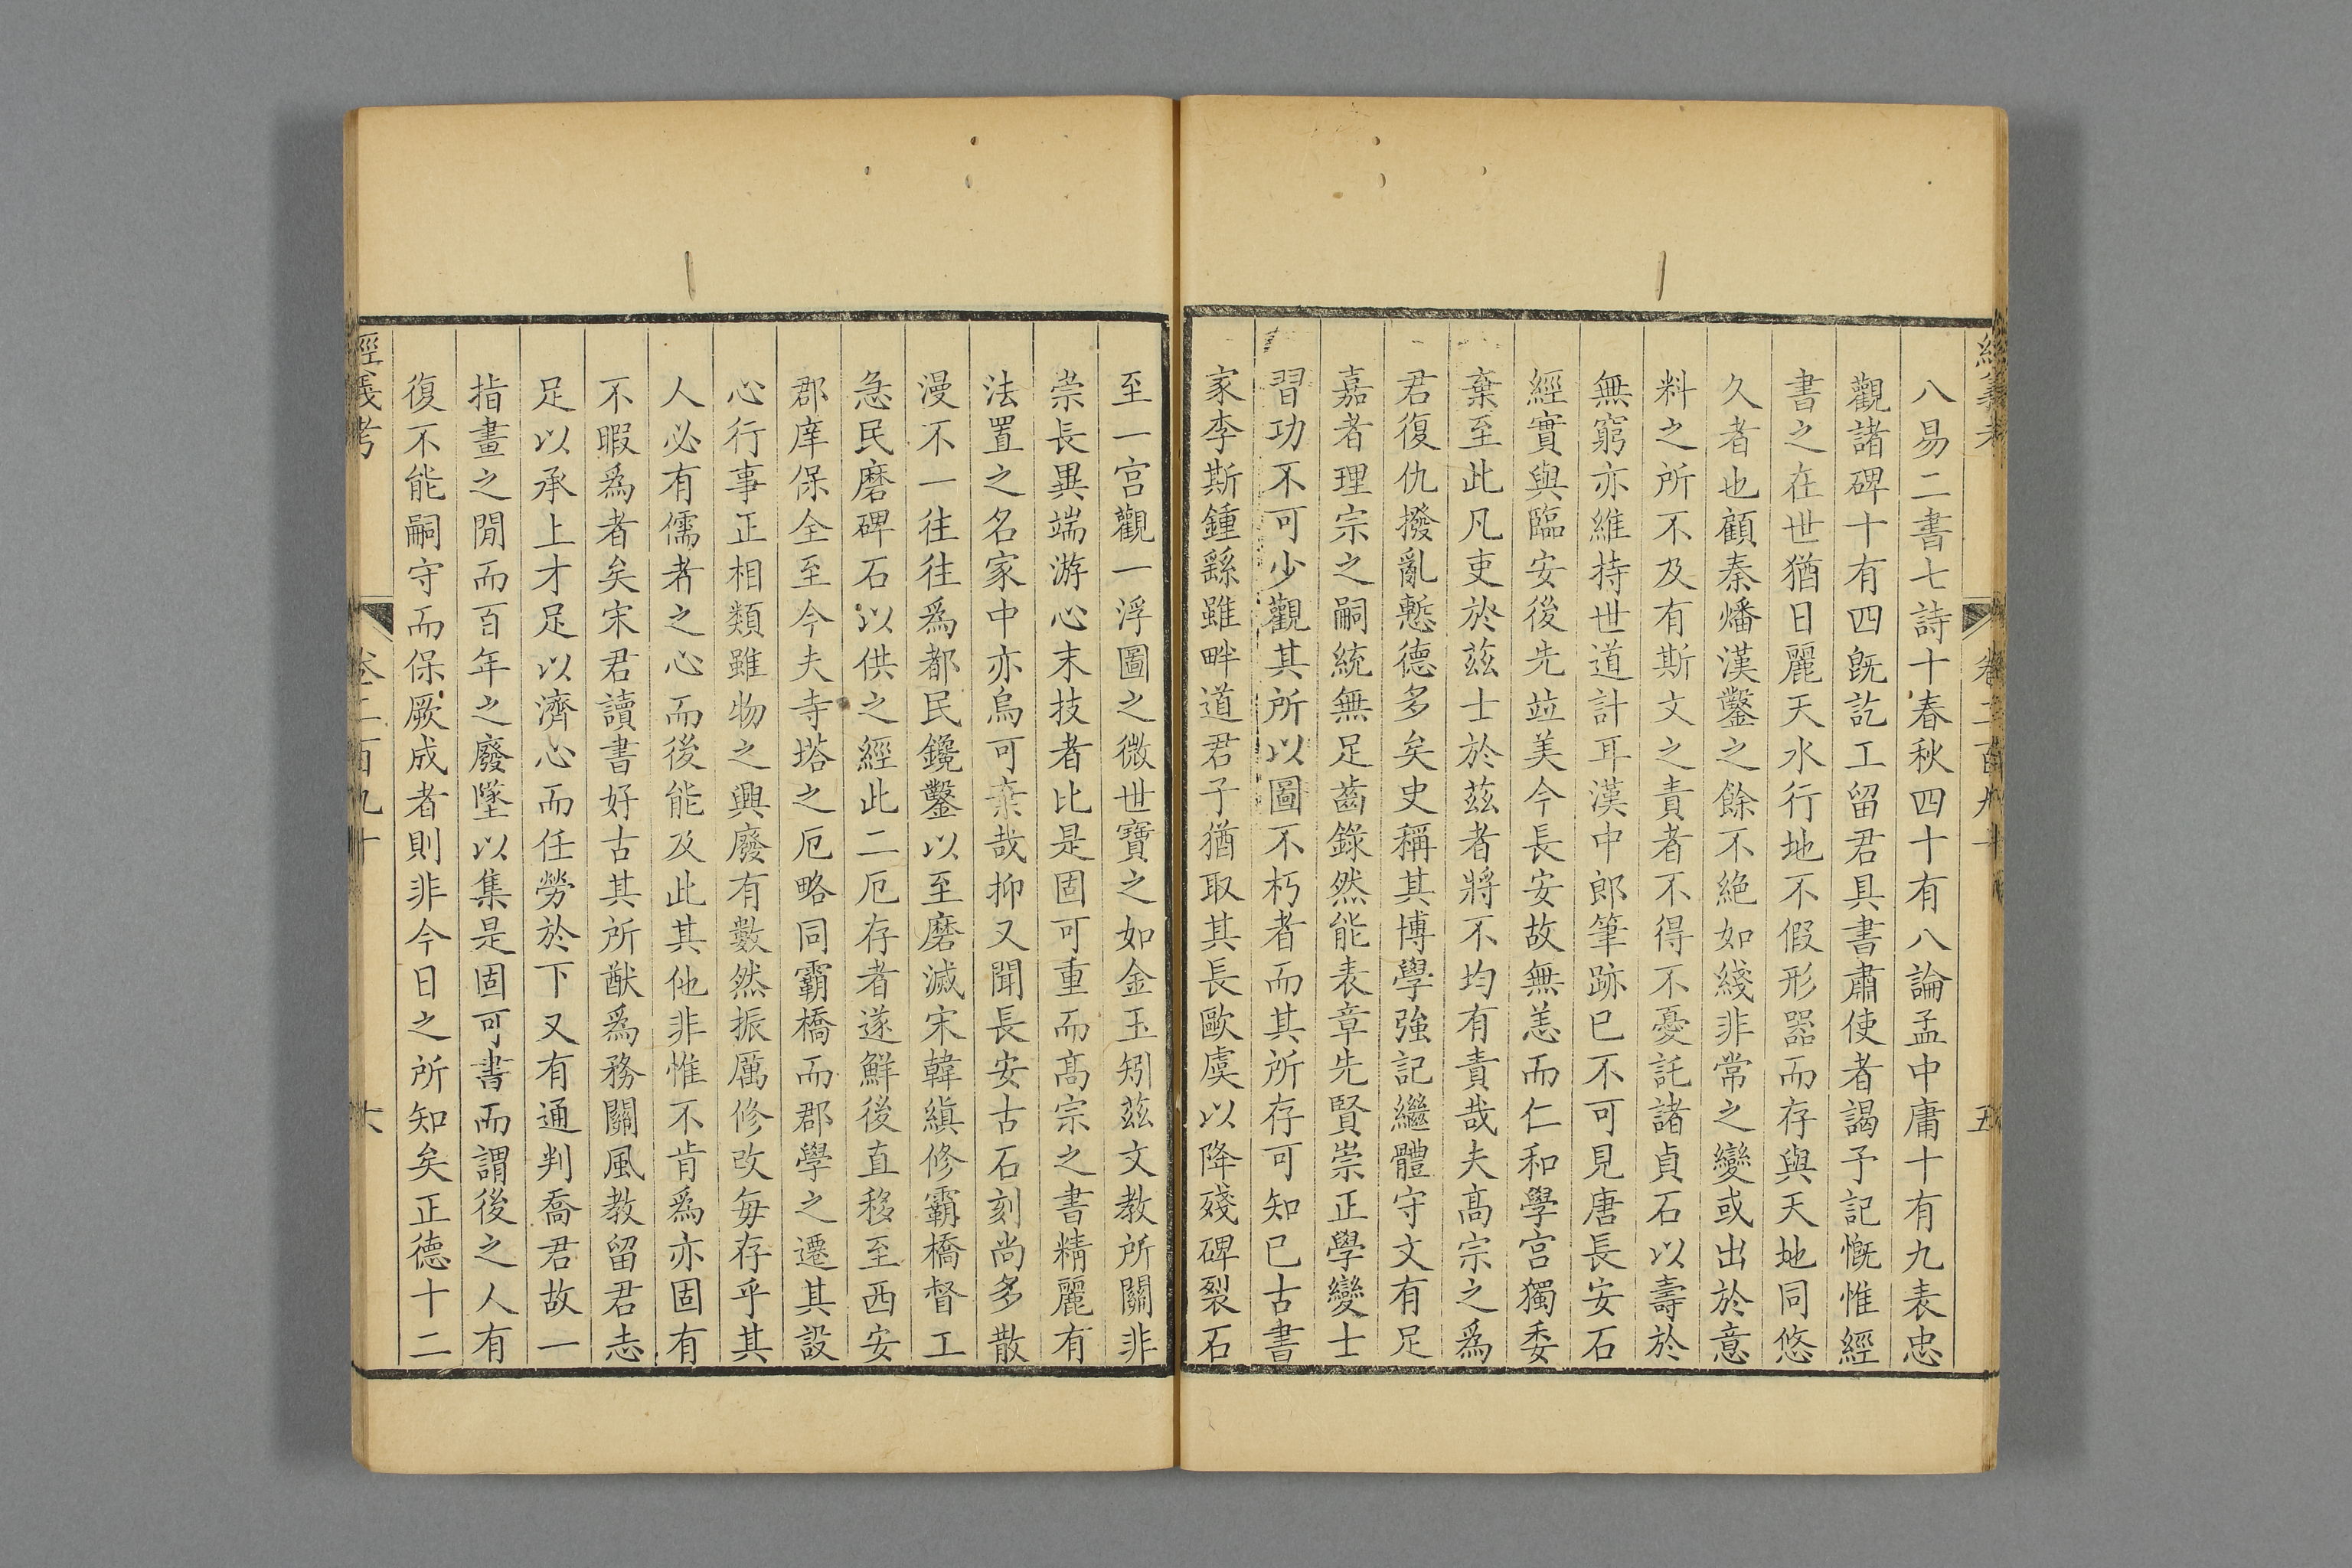 經義考 卷二百九十 五
八易二書七詩十春秋四十有八論孟中庸十有九表忠
觀諸碑十有四旣訖工留君具書肅使者謁予記慨惟經
書之在世猶日麗天水行地不假形器而存與天地同悠
久者也顧秦燔漢鑿之餘不絶如綫非常之變或出於意
料之所不及有斯文之責者不得不憂託諸貞石以壽於
無窮亦維持世道計耳漢中郎筆跡已不可見唐長安石
經實與臨安後先竝美今長安故無恙而仁和學宫獨委
棄至此凡吏於兹士於兹者將不均有責哉夫髙宗之爲
君復仇撥亂慙德多矣史稱其博學強記繼體守文有足
嘉者理宗之嗣統無足齒錄然能表章先賢崇正學變士
習功不可少觀其所以圖不朽者而其所存可知已古書
家李斯鍾繇雖畔道君子猶取其長歐虞以降殘碑裂石
至一宫觀一浮圖之微世寶之如金玉矧兹文教所關非
崇長異端游心末技者比是固可重而髙宗之書精麗有
法置之名家中亦烏可棄哉抑又聞長安古石刻尚多散
漫不一往往爲都民鑱鑿以至磨滅宋韓縝修霸橋督工
急民磨碑石以供之經此二厄存者遂鮮後直移至西安
郡庠保全至今夫寺塔之厄略同霸橋而郡學之遷其設
心行事正相類雖物之興廢有數然振厲修改每存乎其
人必有儒者之心而後能及此其他非惟不肯爲亦固有
不暇爲者矣宋君讀書好古其所猷爲務關風教留君志
足以承上才足以濟心而任勞於下又有通判喬君故一
指畫之閒而百年之廢墜以集是固可書而謂後之人有
復不能嗣守而保厥成者則非今日之所知矣正德十二
經義考 卷二百九十 六